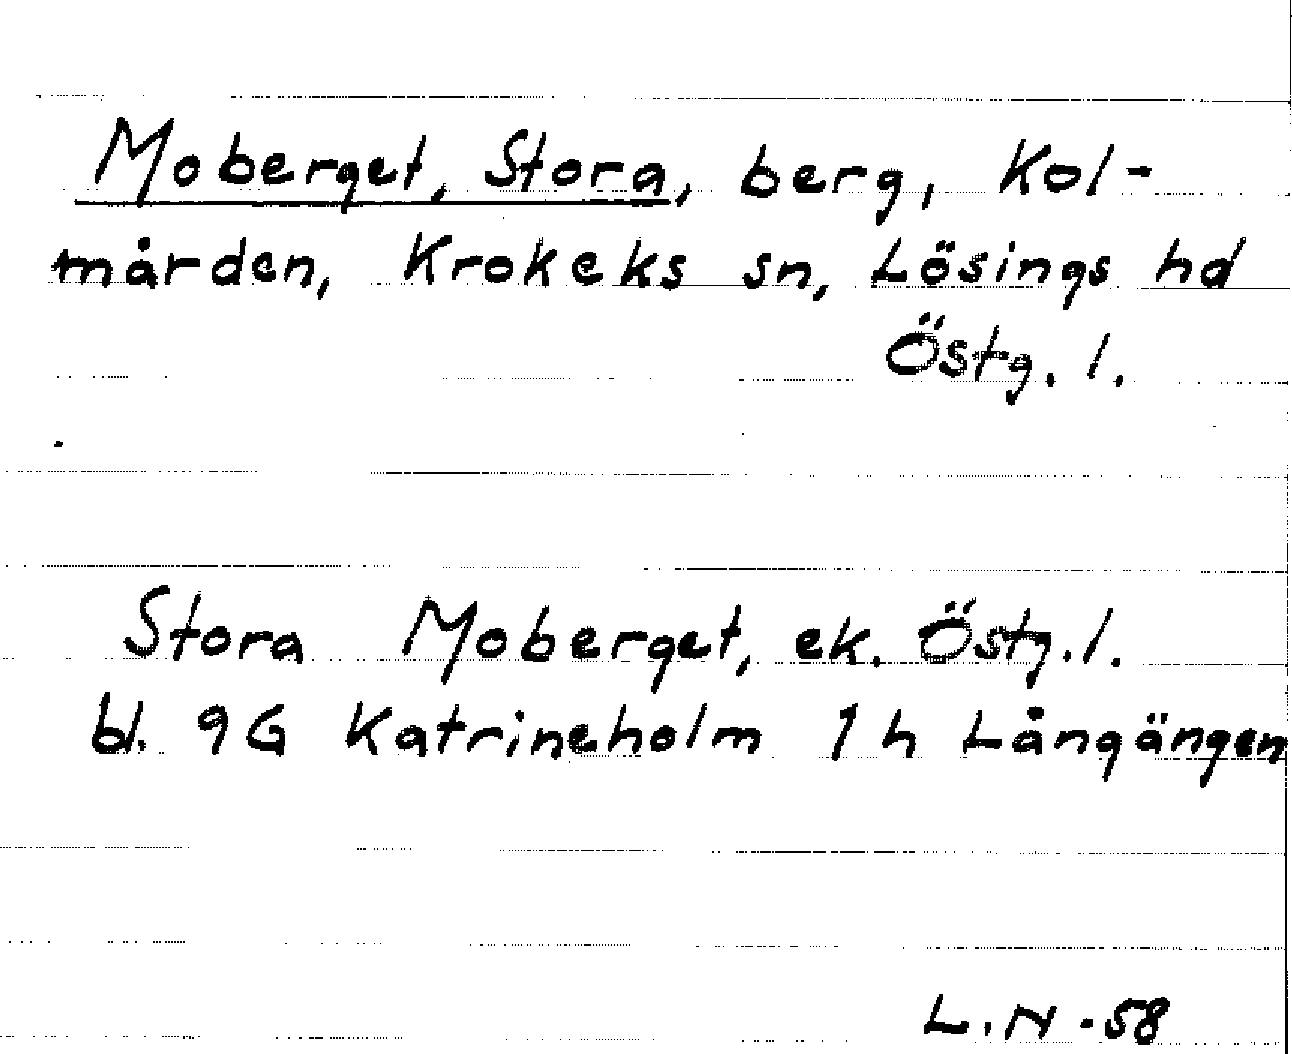 Moberget, Stora, berg, Kol-
mården, Krokeks sn, Lösings hd
Östg. l.
Stora Moberget, ek. Östg. l.
bl. 9G Katrineholm 1h Långängen
L.N -58